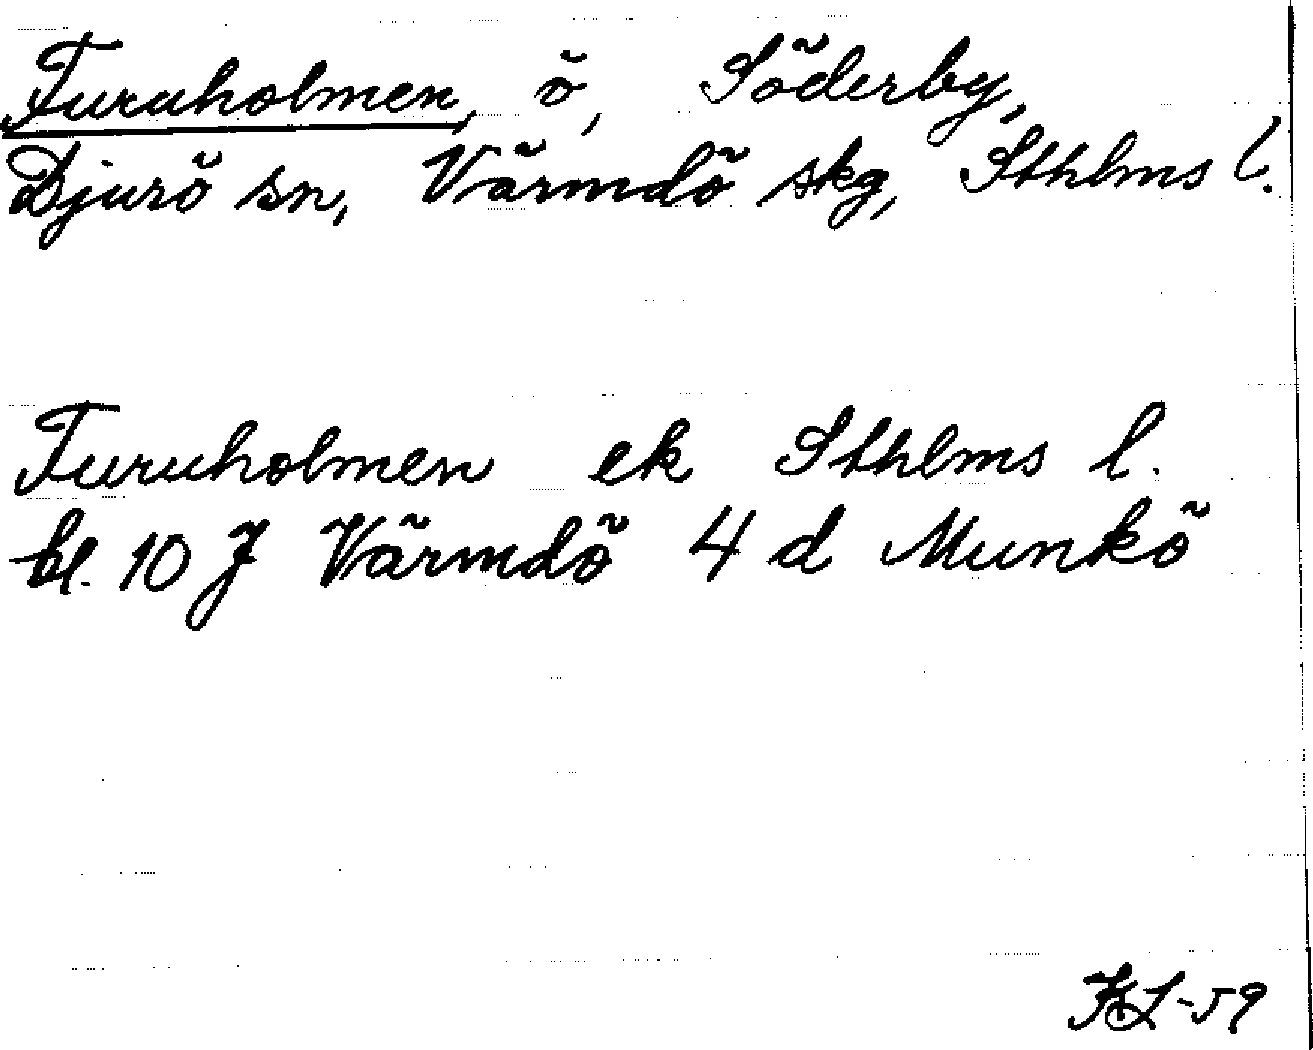 Furuholmen, ö, Söderby,
Djurö sn, Värmdö skg, Sthlms l.
Furuholmen ek Sthlms l.
bl. 10 J Värmdö 4 d Munkö
-59